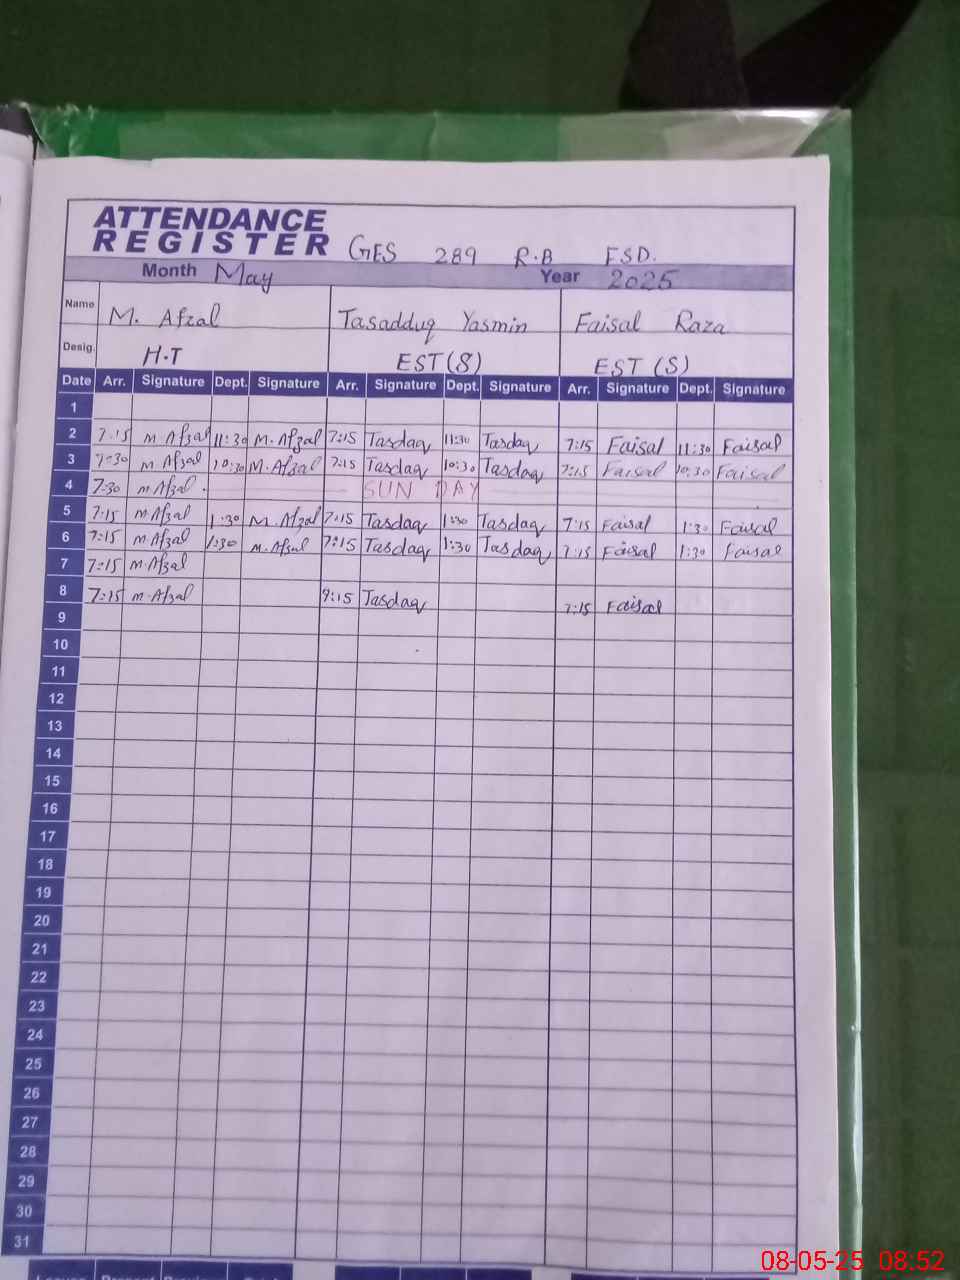 ATTENDANCE
REGISTER GES 289 R.B FSD.
Month May Year 2025
Name M. Afzal Tasadduq Yasmin Faisal Raza
Desig. H.T EST(S) EST (S)
Date Arr. Signature Dept. Signature Arr. Signature Dept. Signature Arr. Signature Dept. Signature
1
2 7:15 M Afzal 11:30 M. Afzal 7:15 Tasdaq 11:30 Tasdaq 7:15 Faisal 11:30 Faisal
3 7:30 M Afzal 10:30 M. Afzal 7:15 Tasdaq 10:30 Tasdaq 7:15 Faisal 10:30 Faisal
4 7:30 M Afzal. SUN DAY
5 7:15 M Afzal 1:30 M. Afzal 7:15 Tasdaq 1:30 Tasdaq 7:15 Faisal 1:30 Faisal
6 7:15 M Afzal 1:30 M. Afzal 7:15 Tasdaq 1:30 Tasdaq 7:15 Faisal 1:30 Faisal
7 7:15 M. Afzal
8 7:15 M. Afzal 7:15 Tasdaq 7:15 Faisal
9
10
11
12
13
14
15
16
17
18
19
20
21
22
23
24
25
26
27
28
29
30
31
08-05-25 08:52